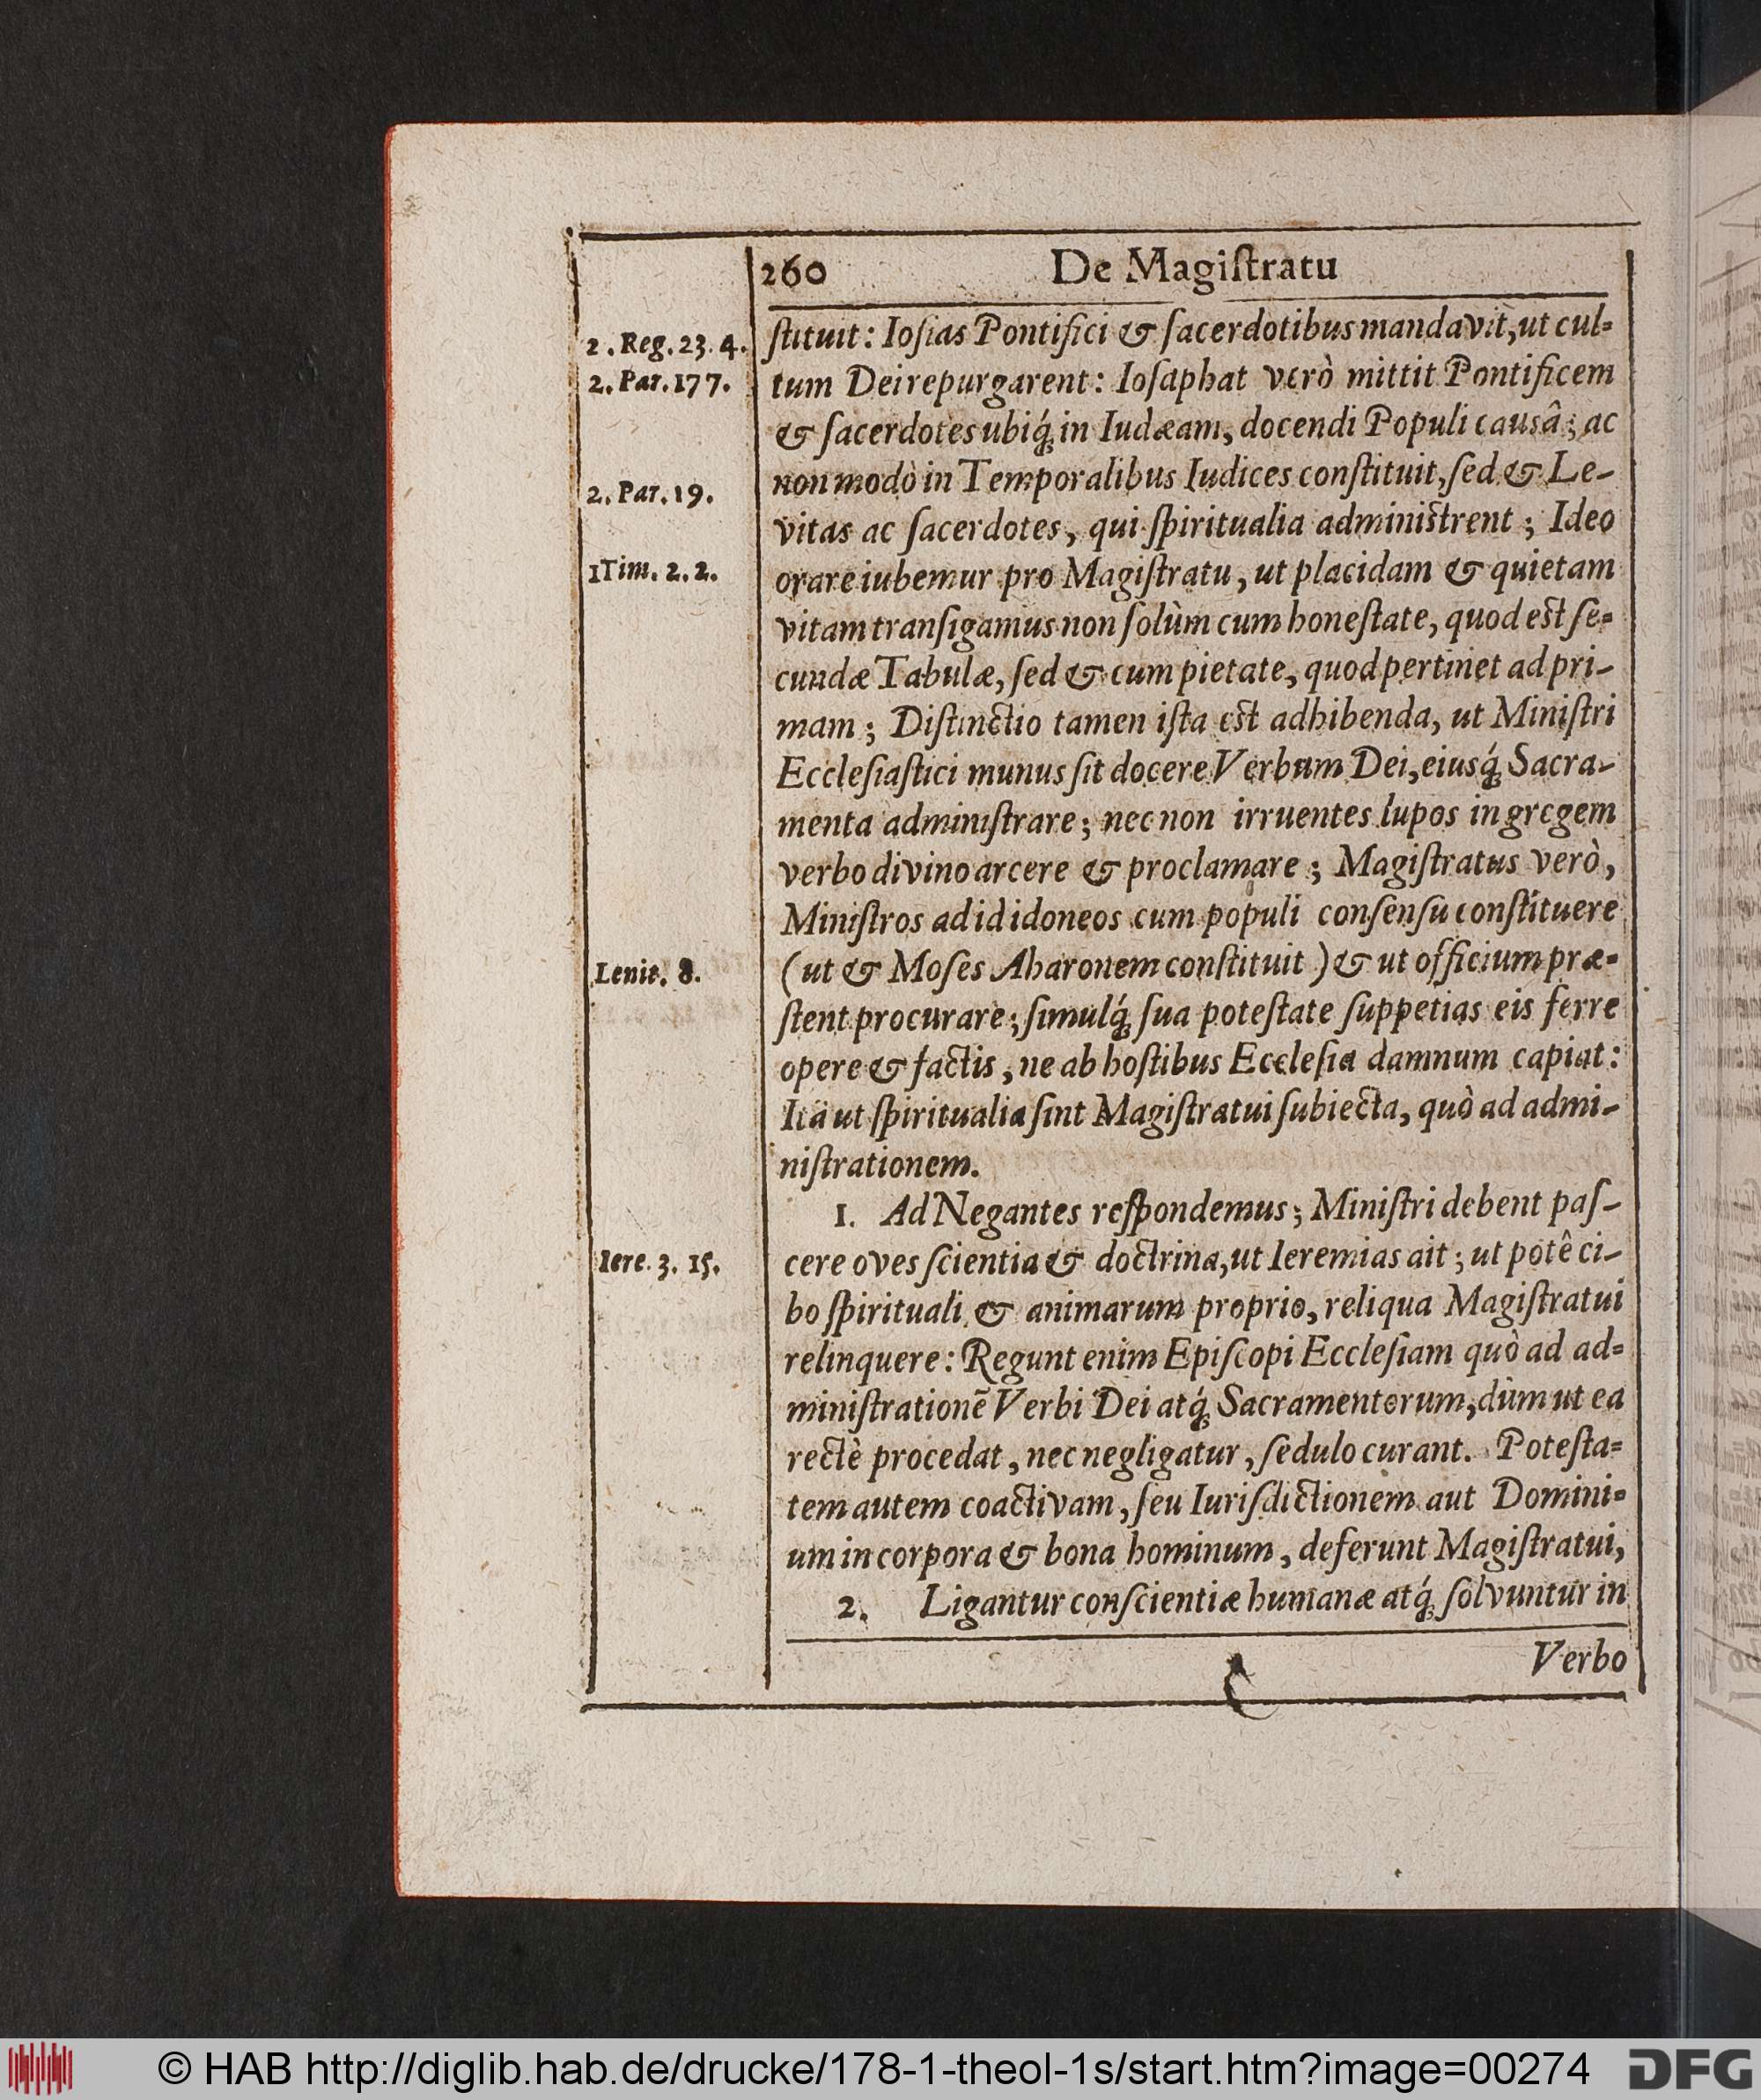 260 De Magiſtratu
2. Reg. 23. 4.
ſtituit: Ioſias Pontifici & ſacerdotibus mandavit, ut cul-
2. Par. 177.
tum Dei repurgarent: Ioſaphat verò mittit Pontificem
& ſacerdotes ubiq́; in Iudæam, docendi Populi causâ; ac
2. Par. 19.
non modò in Temporalibus Iudices conſtituit, ſed & Le-
vitas ac ſacerdotes, qui ſpiritualia adminiſtrent; Ideo
1 Tim. 2. 2.
orare iubemur pro Magiſtratu, ut placidam & quietam
vitam tranſigamus non ſolùm cum honeſtate, quod eſt ſe-
cundæ Tabulæ, ſed & cum pietate, quod pertinet ad pri-
mam; Diſtinctio tamen iſta eſt adhibenda, ut Miniſtri
Eccleſiaſtici munus ſit docere Verbum Dei, eiusq́; Sacra-
menta adminiſtrare; nec non irruentes lupos in gregem
verbo divino arcere & proclamare; Magiſtratus verò,
Miniſtros ad id idoneos cum populi conſenſu conſtituere
Lenit. 8.
(ut & Moſes Aharonem conſtituit) & ut officium præ-
ſtent procurare; ſimulq́; ſua poteſtate ſuppetias eis ferre
opere & factis, ne ab hoſtibus Eccleſia damnum capiat:
Ita ut ſpiritualia ſint Magiſtratui ſubiecta, quò ad admi-
niſtrationem.
1. Ad Negantes reſpondemus; Miniſtri debent paſ-
Iere. 3. 15.
cere oves ſcientia & doctrina, ut Ieremias ait; ut potê ci-
bo ſpirituali & animarum proprio, reliqua Magiſtratui
relinquere: Regunt enim Epiſcopi Eccleſiam quò ad ad-
miniſtrationẽ Verbi Dei atq́; Sacramentorum, dùm ut ea
rectè procedat, nec negligatur, ſedulo curant. Poteſta-
tem autem coactivam, ſeu Iuriſdictionem aut Domini-
um in corpora & bona hominum, deferunt Magiſtratui,
2. Ligantur conſcientiæ humanæ atq́; ſolvuntur in
Verbo
© HAB http://diglib.hab.de/drucke/178-1-theol-1s/start.htm?image=00274
DFG